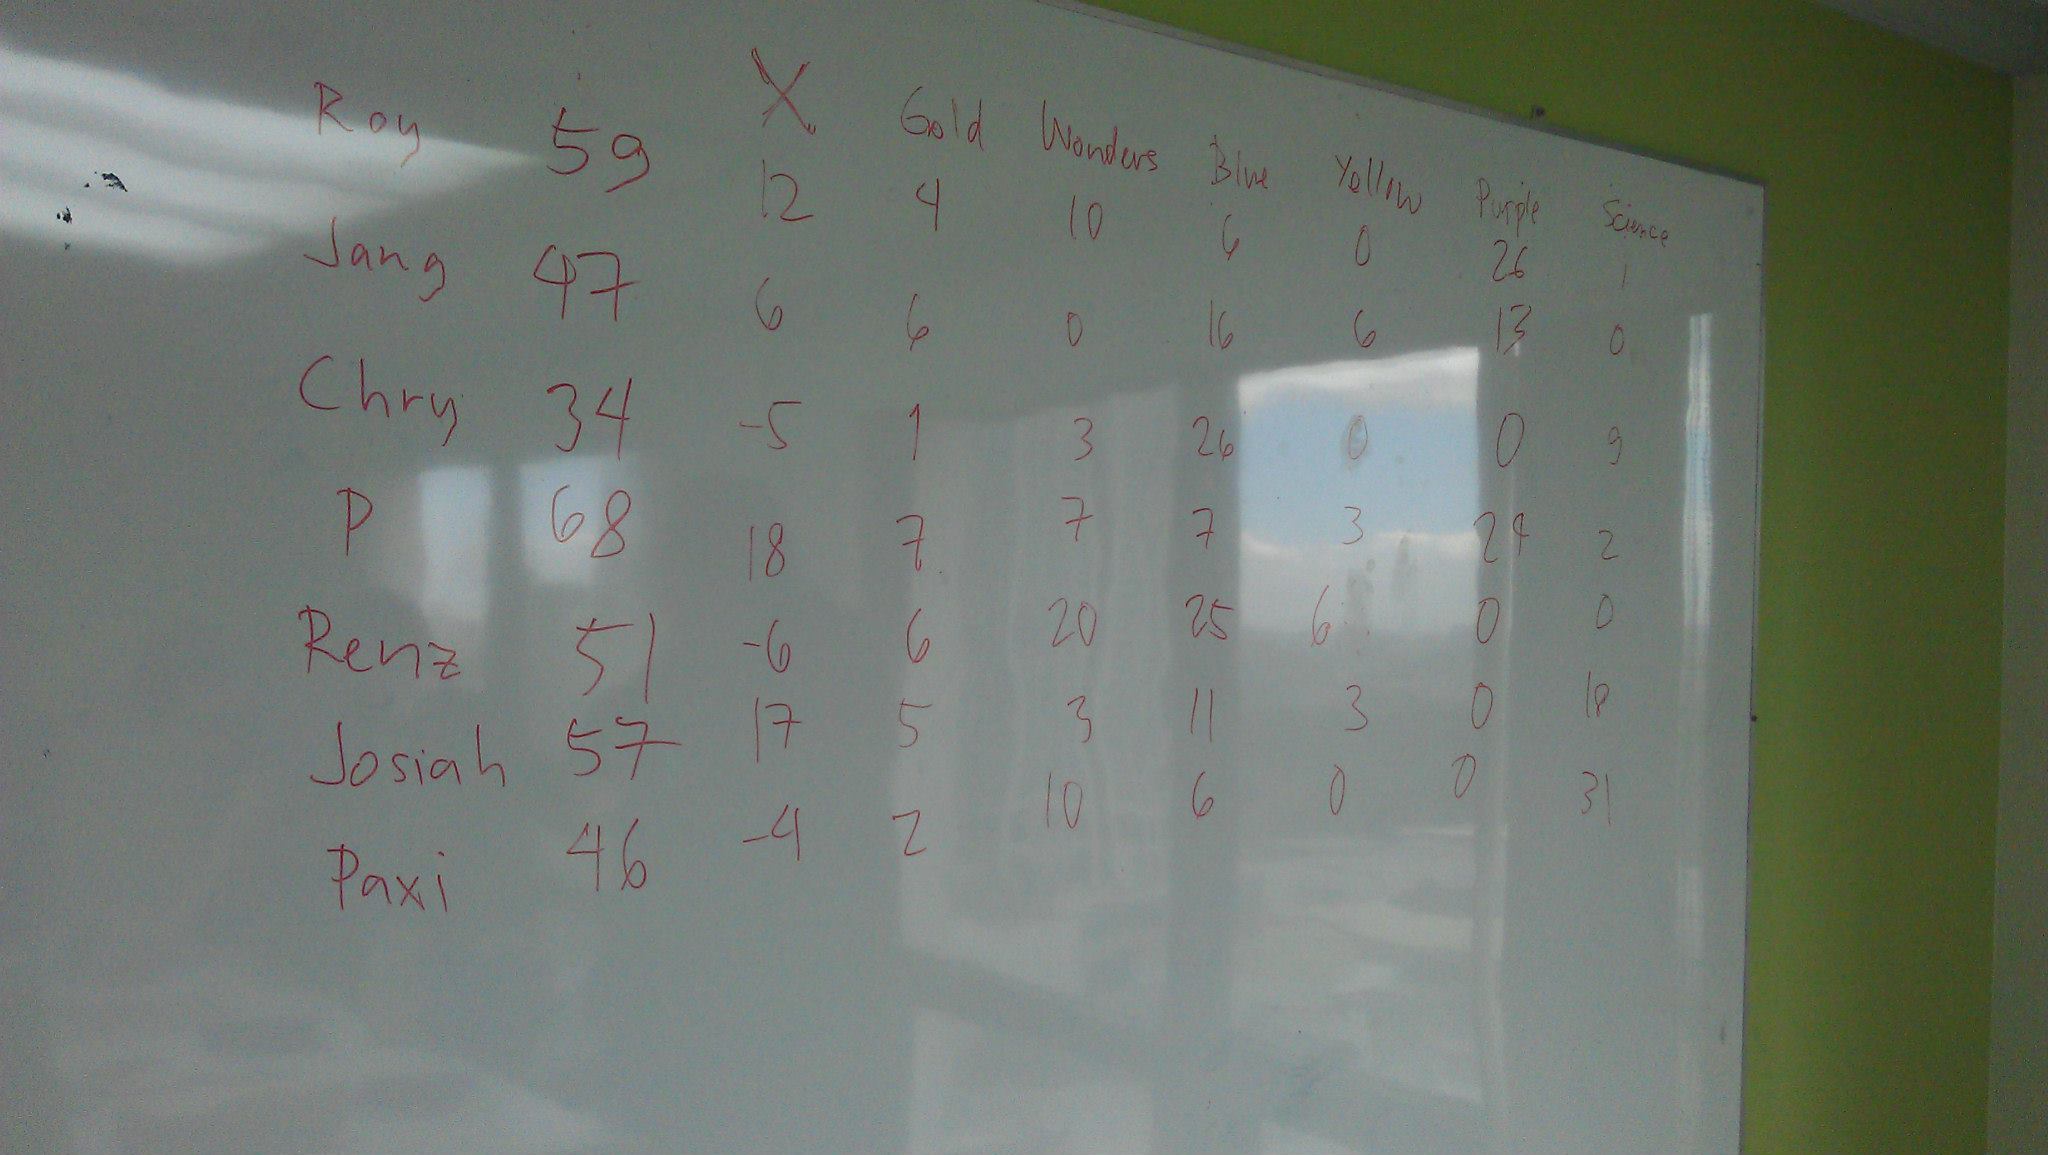 X Gold Wonders Blue Yellow Purple Science
Roy 59 12 4 10 6 0 26 1
Jang 47 6 6 0 16 6 13 0
Chry 34 -5 1 3 26 0 0 9
P 68 18 7 7 7 3 24 2
Renz 51 -6 6 20 25 6 0 0
Josiah 57 17 5 3 11 3 0 18
Paxi 46 -4 2 10 6 0 0 31